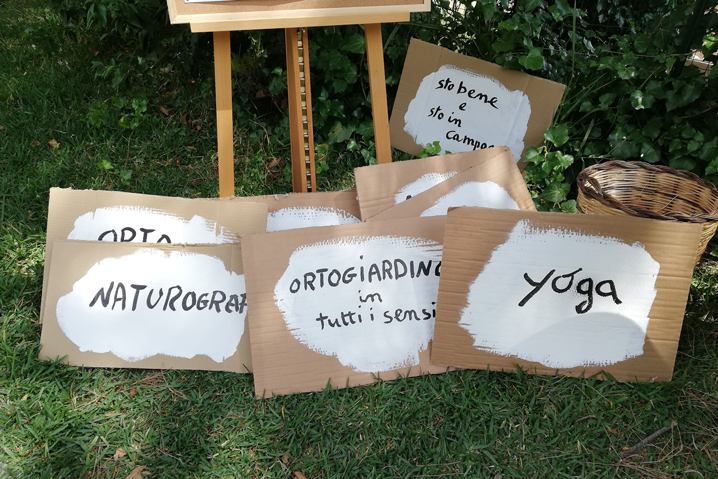 sto bene
e
sto in
ORTO
NATUROGRAF
ORTOGIARDINO
in
tutti i sensi
yoga